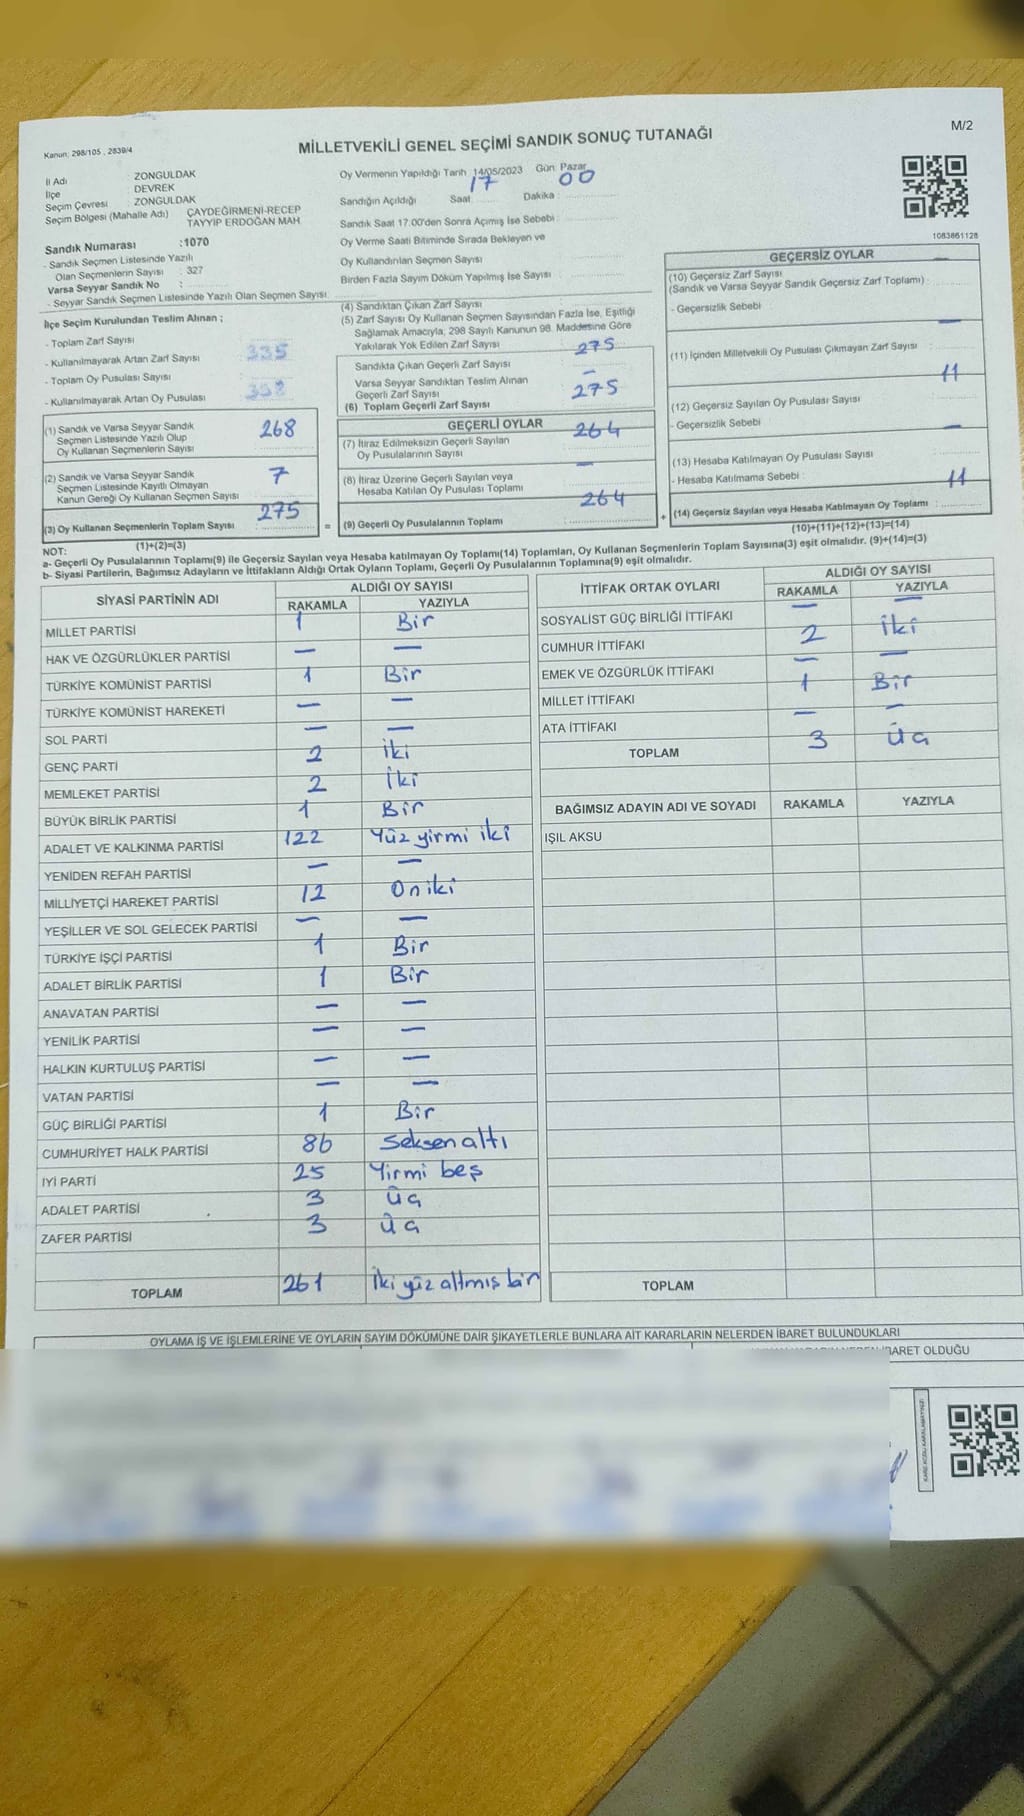 M/2
Kanun: 298/105 , 2839/4
MİLLETVEKİLİ GENEL SEÇİMİ SANDIK SONUÇ TUTANAĞI
İl Adı : ZONGULDAK
İlçe : DEVREK
Seçim Çevresi : ZONGULDAK
Seçim Bölgesi (Mahalle Adı) ÇAYDEĞİRMENİ-RECEP
TAYYİP ERDOĞAN MAH.
Sandık Numarası :1070
- Sandık Seçmen Listesinde Yazılı
Olan Seçmenlerin Sayısı : 327
Varsa Seyyar Sandık No :
- Seyyar Sandık Seçmen Listesinde Yazılı Olan Seçmen Sayısı:
Oy Vermenin Yapıldığı Tarih :14/05/2023 Gün: Pazar
Sandığın Açıldığı Saat: 17 Dakika : 00
Sandık Saat 17.00'den Sonra Açımış İse Sebebi :
Oy Verme Saati Bitiminde Sırada Bekleyen ve
Oy Kullandırılan Seçmen Sayısı :
Birden Fazla Sayım Döküm Yapılmış İse Sayısı :
1083861128
İlçe Seçim Kurulundan Teslim Alınan ;
- Toplam Zarf Sayısı :
- Kullanılmayarak Artan Zarf Sayısı : 335
- Toplam Oy Pusulası Sayısı :
- Kullanılmayarak Artan Oy Pusulası :
(1) Sandık ve Varsa Seyyar Sandık
Seçmen Listesinde Yazılı Olup
Oy Kullanan Seçmenlerin Sayısı : 268
(2) Sandık ve Varsa Seyyar Sandık
Seçmen Listesinde Kayıtlı Olmayan
Kanun Gereği Oy Kullanan Seçmen Sayısı : 7
(3) Oy Kullanan Seçmenlerin Toplam Sayısı : 275
(1)+(2)=(3)
(4) Sandıktan Çıkan Zarf Sayısı :
(5) Zarf Sayısı Oy Kullanan Seçmen Sayısından Fazla İse, Eşitliği
Sağlamak Amacıyla; 298 Sayılı Kanunun 98. Maddesine Göre
Yakılarak Yok Edilen Zarf Sayısı :
Sandıkta Çıkan Geçerli Zarf Sayısı : 275
Varsa Seyyar Sandıktan Teslim Alınan
Geçerli Zarf Sayısı : —
(6) Toplam Geçerli Zarf Sayısı : 275
GEÇERLİ OYLAR
(7) İtiraz Edilmeksizin Geçerli Sayılan
Oy Pusulalarının Sayısı : 264
(8) İtiraz Üzerine Geçerli Sayılan veya
Hesaba Katılan Oy Pusulası Toplamı : —
= (9) Geçerli Oy Pusulalarının Toplamı : 264
GEÇERSİZ OYLAR
(10) Geçersiz Zarf Sayısı
(Sandık ve Varsa Seyyar Sandık Geçersiz Zarf Toplamı) : —
- Geçersizlik Sebebi :
(11) İçinden Milletvekili Oy Pusulası Çıkmayan Zarf Sayısı : —
(12) Geçersiz Sayılan Oy Pusulası Sayısı : 11
- Geçersizlik Sebebi :
(13) Hesaba Katılmayan Oy Pusulası Sayısı : —
- Hesaba Katılmama Sebebi :
+ (14) Geçersiz Sayılan veya Hesaba Katılmayan Oy Toplamı : 11
(10)+(11)+(12)+(13)=(14)
NOT:
a- Geçerli Oy Pusulalarının Toplamı(9) ile Geçersiz Sayılan veya Hesaba katılmayan Oy Toplamı(14) Toplamları, Oy Kullanan Seçmenlerin Toplam Sayısına(3) eşit olmalıdır. (9)+(14)=(3)
b- Siyasi Partilerin, Bağımsız Adayların ve İttifakların Aldığı Ortak Oyların Toplamı, Geçerli Oy Pusulalarının Toplamına(9) eşit olmalıdır.
SİYASİ PARTİNİN ADI ALDIĞI OY SAYISI
RAKAMLA YAZIYLA
MİLLET PARTİSİ 1 Bir
HAK VE ÖZGÜRLÜKLER PARTİSİ — —
TÜRKİYE KOMÜNİST PARTİSİ 1 Bir
TÜRKİYE KOMÜNİST HAREKETİ — —
SOL PARTİ — —
GENÇ PARTİ 2 İki
MEMLEKET PARTİSİ 2 İki
BÜYÜK BİRLİK PARTİSİ 1 Bir
ADALET VE KALKINMA PARTİSİ 122 Yüz yirmi iki
YENİDEN REFAH PARTİSİ — —
MİLLİYETÇİ HAREKET PARTİSİ 12 Oniki
YEŞİLLER VE SOL GELECEK PARTİSİ — —
TÜRKİYE İŞÇİ PARTİSİ 1 Bir
ADALET BİRLİK PARTİSİ 1 Bir
ANAVATAN PARTİSİ — —
YENİLİK PARTİSİ — —
HALKIN KURTULUŞ PARTİSİ — —
VATAN PARTİSİ — —
GÜÇ BİRLİĞİ PARTİSİ 1 Bir
CUMHURİYET HALK PARTİSİ 86 Seksen altı
İYİ PARTİ 25 Yirmi beş
ADALET PARTİSİ 3 Üç
ZAFER PARTİSİ 3 Üç
TOPLAM 261 İki yüz altmış bir
İTTİFAK ORTAK OYLARI ALDIĞI OY SAYISI
RAKAMLA YAZIYLA
SOSYALİST GÜÇ BİRLİĞİ İTTİFAKI — —
CUMHUR İTTİFAKI 2 İki
EMEK VE ÖZGÜRLÜK İTTİFAKI — —
MİLLET İTTİFAKI 1 Bir
ATA İTTİFAKI — —
TOPLAM 3 Üç
BAĞIMSIZ ADAYIN ADI VE SOYADI RAKAMLA YAZIYLA
IŞIL AKSU
TOPLAM
OYLAMA İŞ VE İŞLEMLERİNE VE OYLARIN SAYIM DÖKÜMÜNE DAİR ŞİKAYETLERLE BUNLARA AİT KARARLARIN NELERDEN İBARET BULUNDUKLARI
OLDUĞU